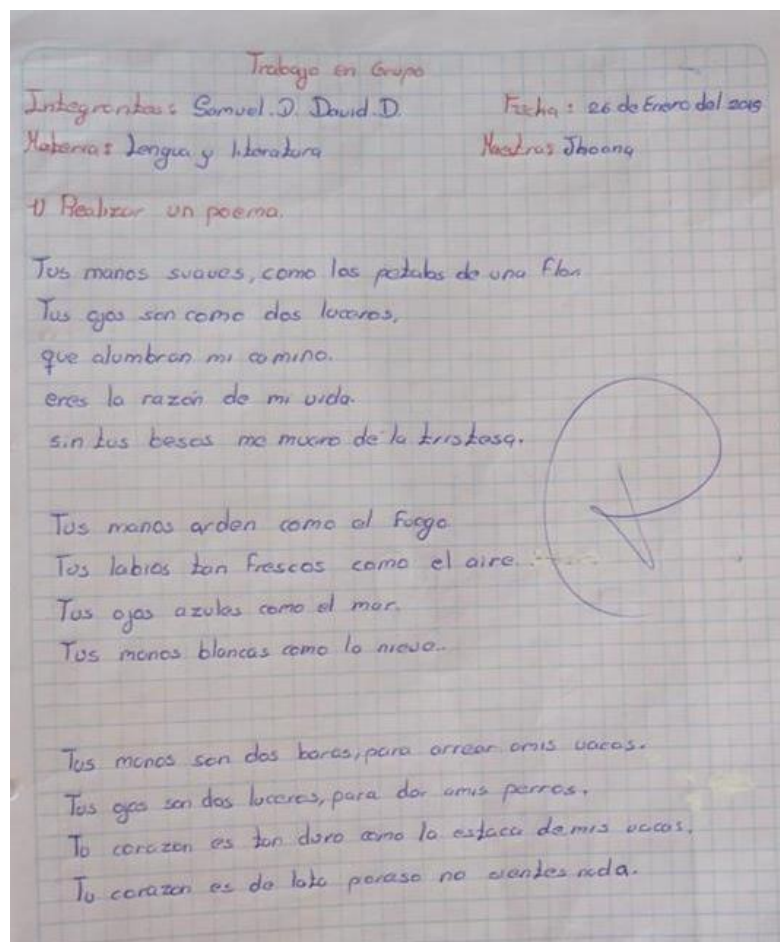 Trabajo en Grupo
Integrantes: Samuel. D. David. D. Fecha: 26 de Enero del 2019
Materia: Lengua y literatura Jhoana
1) Realizar un poema.
Tus manos suaves, como los petalos de una flor
Tus ojos son como dos luceros,
que alumbran mi camino.
eres la razón de mi vida.
sin tus besos me muero de la tristesa.
Tus manos arden como el fuego
Tus labios tan frescos como el aire.
Tus ojos azules como el mar.
Tus manos blancas como la nieve.
Tus manos son dos baras, para arrear amis vacas.
Tus ojos son dos luceros, para dar amis perros.
Tu corazon es tan duro como la estaca demis vacas.
Tu corazon es de lata poreso no sientes nada.